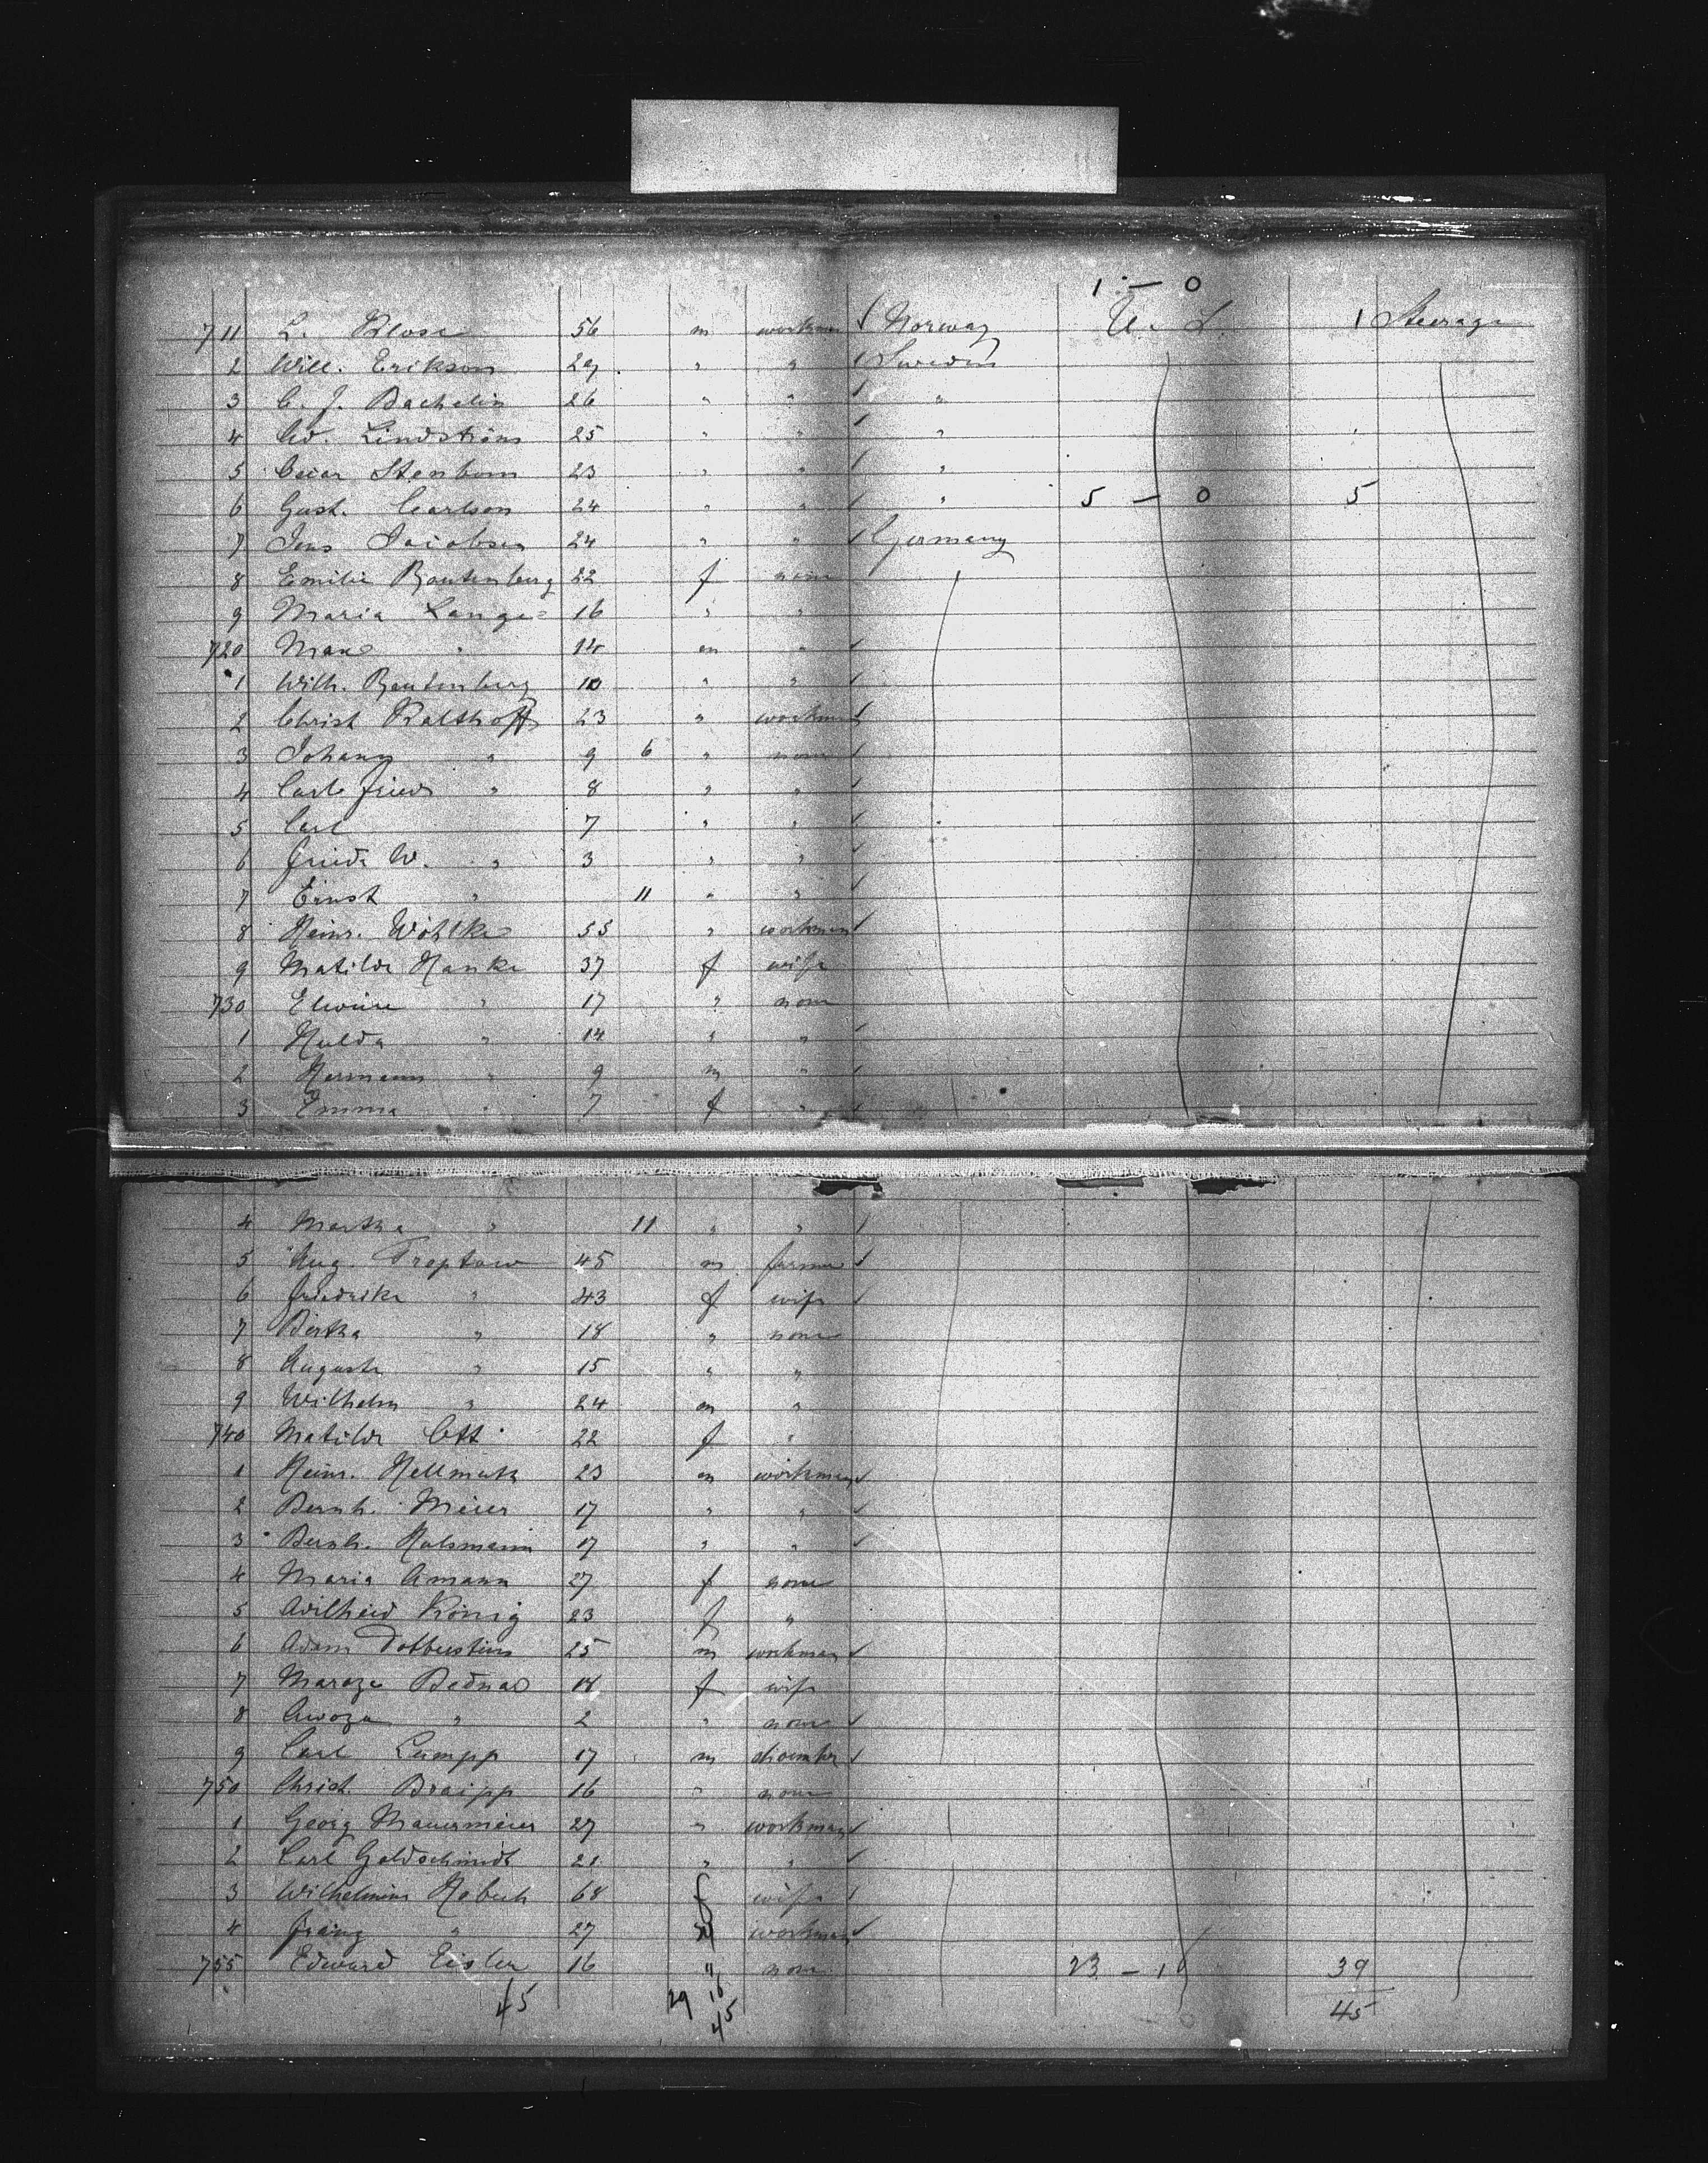 1 - 0
711 L. Blose 56 m workman Norway U. S. 1 Steerage
2 Will. Erikson 29 " " Sweden
3 C. J. Bachelin 26 " " "
4 Ad. Lindström 25 " " "
5 Oscar Stenbom 23 " " "
6 Gust. Carlson 24 " " " 5 - 0 5
7 Jens Jacobsen 24 " " Germany
8 Emilie 22 f none
9 Maria Lange 16 " "
720 Max " 14 m "
1 Wilh. 10 " "
2 Christ Kalthoff 23 " workman
3 Johann " 9 6 " none
4 Carl Fried " 8 " "
5 Carl 7 " "
6 Frieda W. " 3 " "
7 Ernst " 11 " "
8 Heinr. Wöhlke 55 " workman
9 Matilde Hanke 37 f wife
730 Elwine " 17 " none
1 Hulda " 14 " "
2 Hermann " 9 m "
3 Emma " 7 f "
4 Martha " 11 " "
5 Aug. Treptow 45 m farmer
6 Friedrike " 43 f wife
7 Bertha " 18 " none
8 Auguste " 15 " "
9 Wilhelm " 24 m "
740 Matilde Ott 22 f "
1 Heinr. Hellmuth 23 m workman
2 Bernh. Meier 17 " "
3 Bernh. Holsmann 17 " "
4 Maria Amann 27 f none
5 Adilheid König 23 f "
6 Adam 25 m workman
7 Bednar 18 f wife
8 " 2 " none
9 Carl Lumpp 17 m
750 Christ. Braipp 16 " none
1 Georg Mauermeier 27 " workman
2 Carl Goldschmidt 21 " "
3 Wilhelmine 68 f wife
4 Franz " 27 m workman
755 Edward Eisler 16 " none 23 - 16 39
45 29 16 45
45